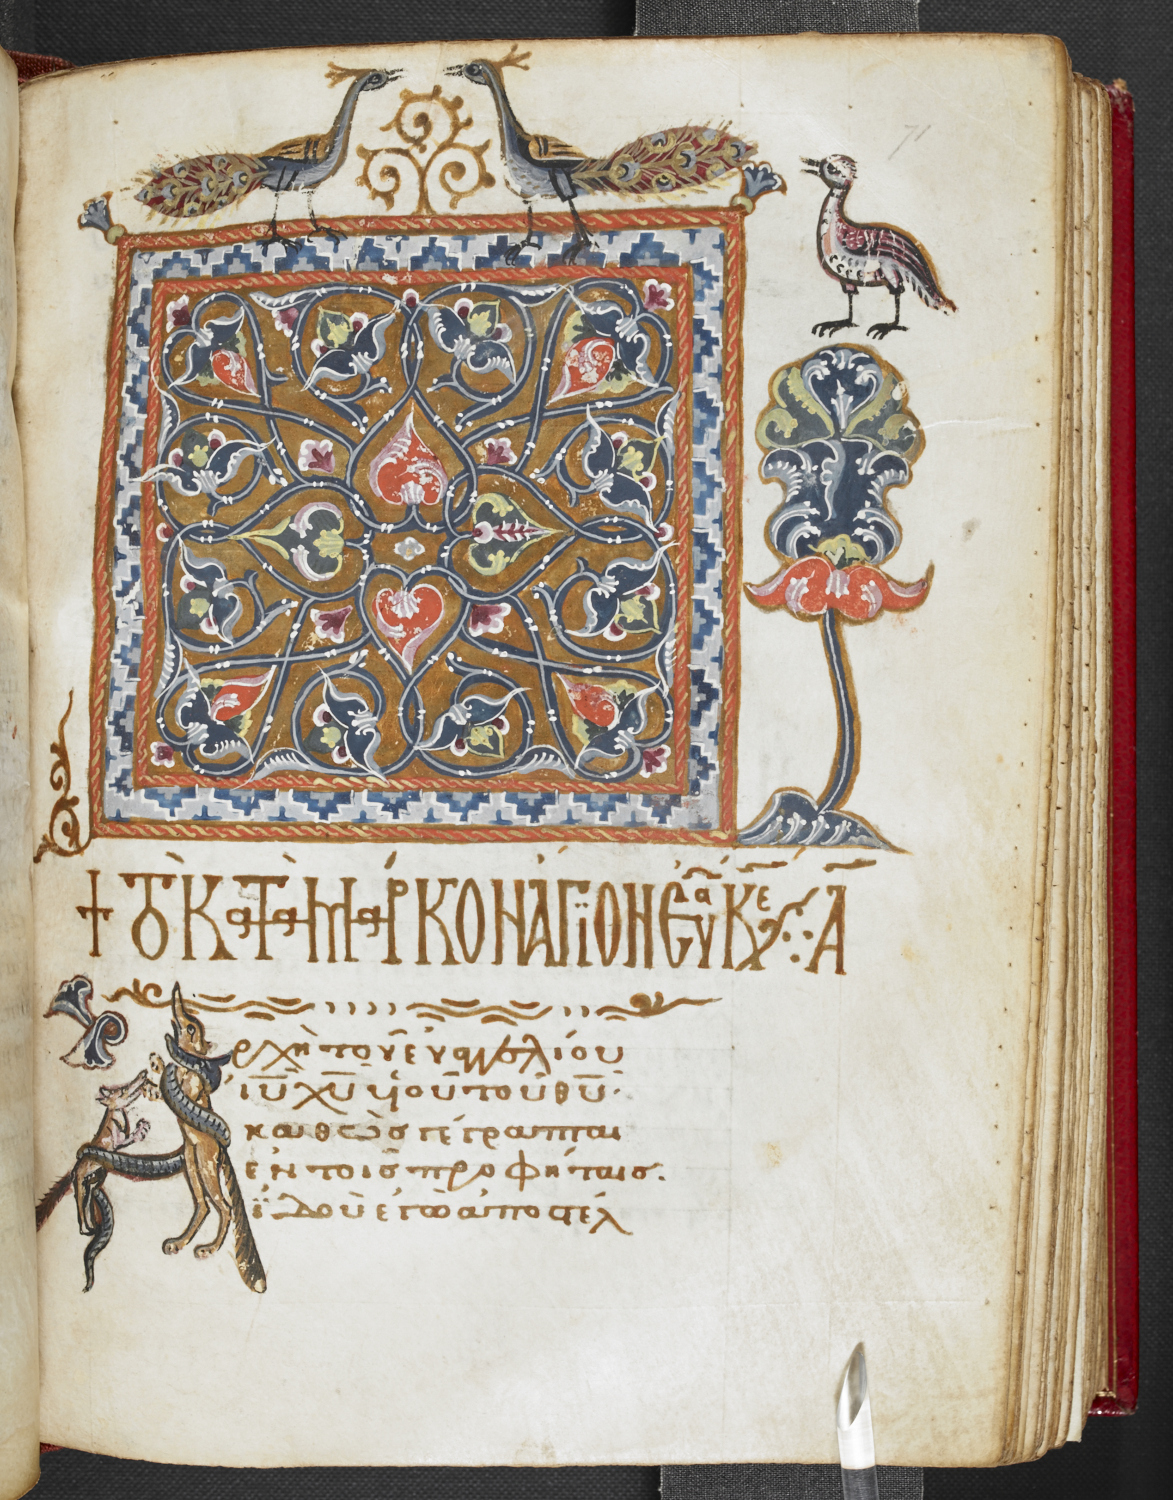 71
+ τὸ κατὰ μάρκον ἅγιον εὐα κε ⁘ Α
Ἀρχὴ τοῦ εὐαγγελίου
ἰ̅υ̅ χ̅υ̅ υἱοῦ τοῦ θ̅υ̅·
καθὼς γέγραπται
ἐν τοῖς προφήταις.
ἰδοὺ ἐγὼ ἀποστέλ